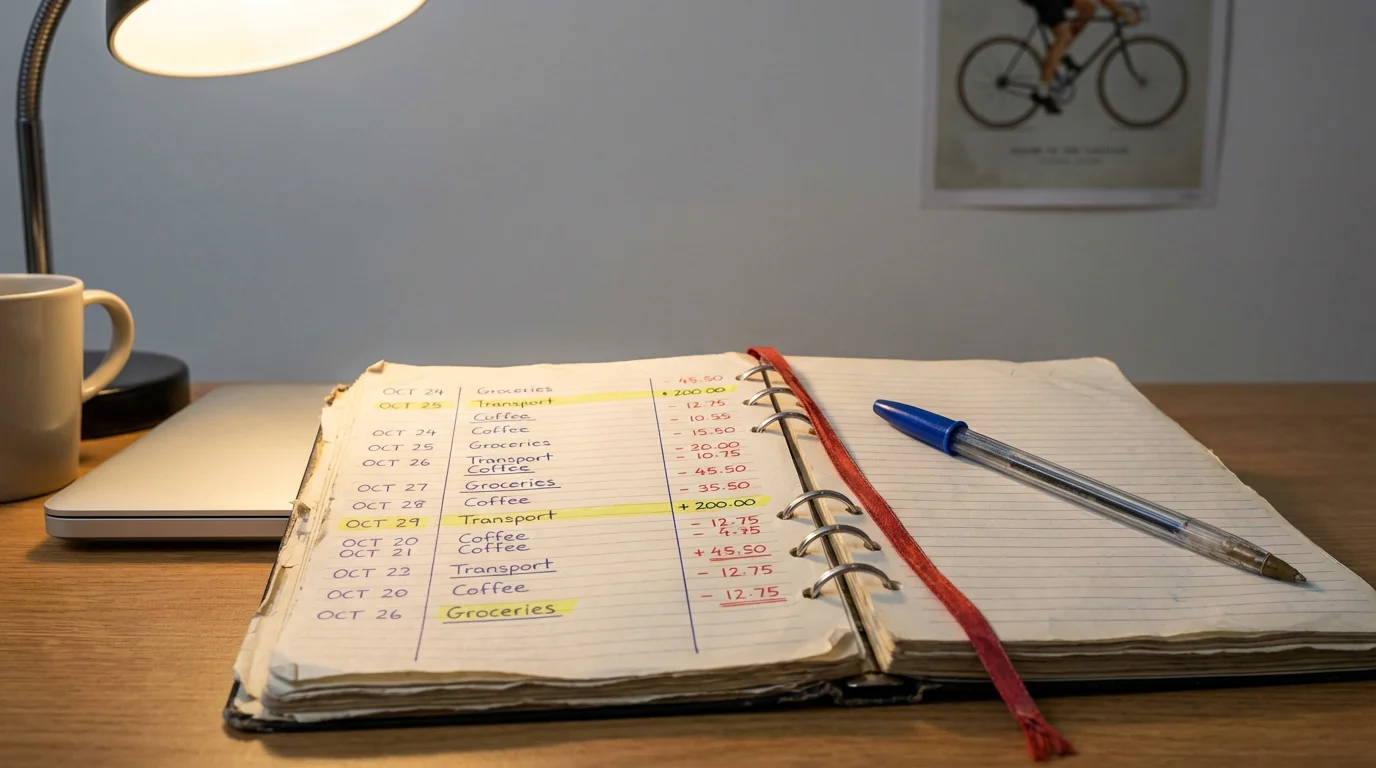 OCT 24 Groceries - 45.50
OCT 25 Transport +200.00
Coffee - 12.75
OCT 24 Coffee - 10.55
OCT 25 Groceries - 15.50
OCT 26 Transport - 20.00
Coffee - 10.75
OCT 27 Groceries - 45.50
OCT 28 Coffee - 35.50
OCT 29 Transport + 200.00
OCT 20 Coffee - 12.75
OCT 21 Coffee - 4.75
OCT 22 Transport + 45.50
OCT 20 Coffee - 12.75
OCT 26 Groceries - 12.75